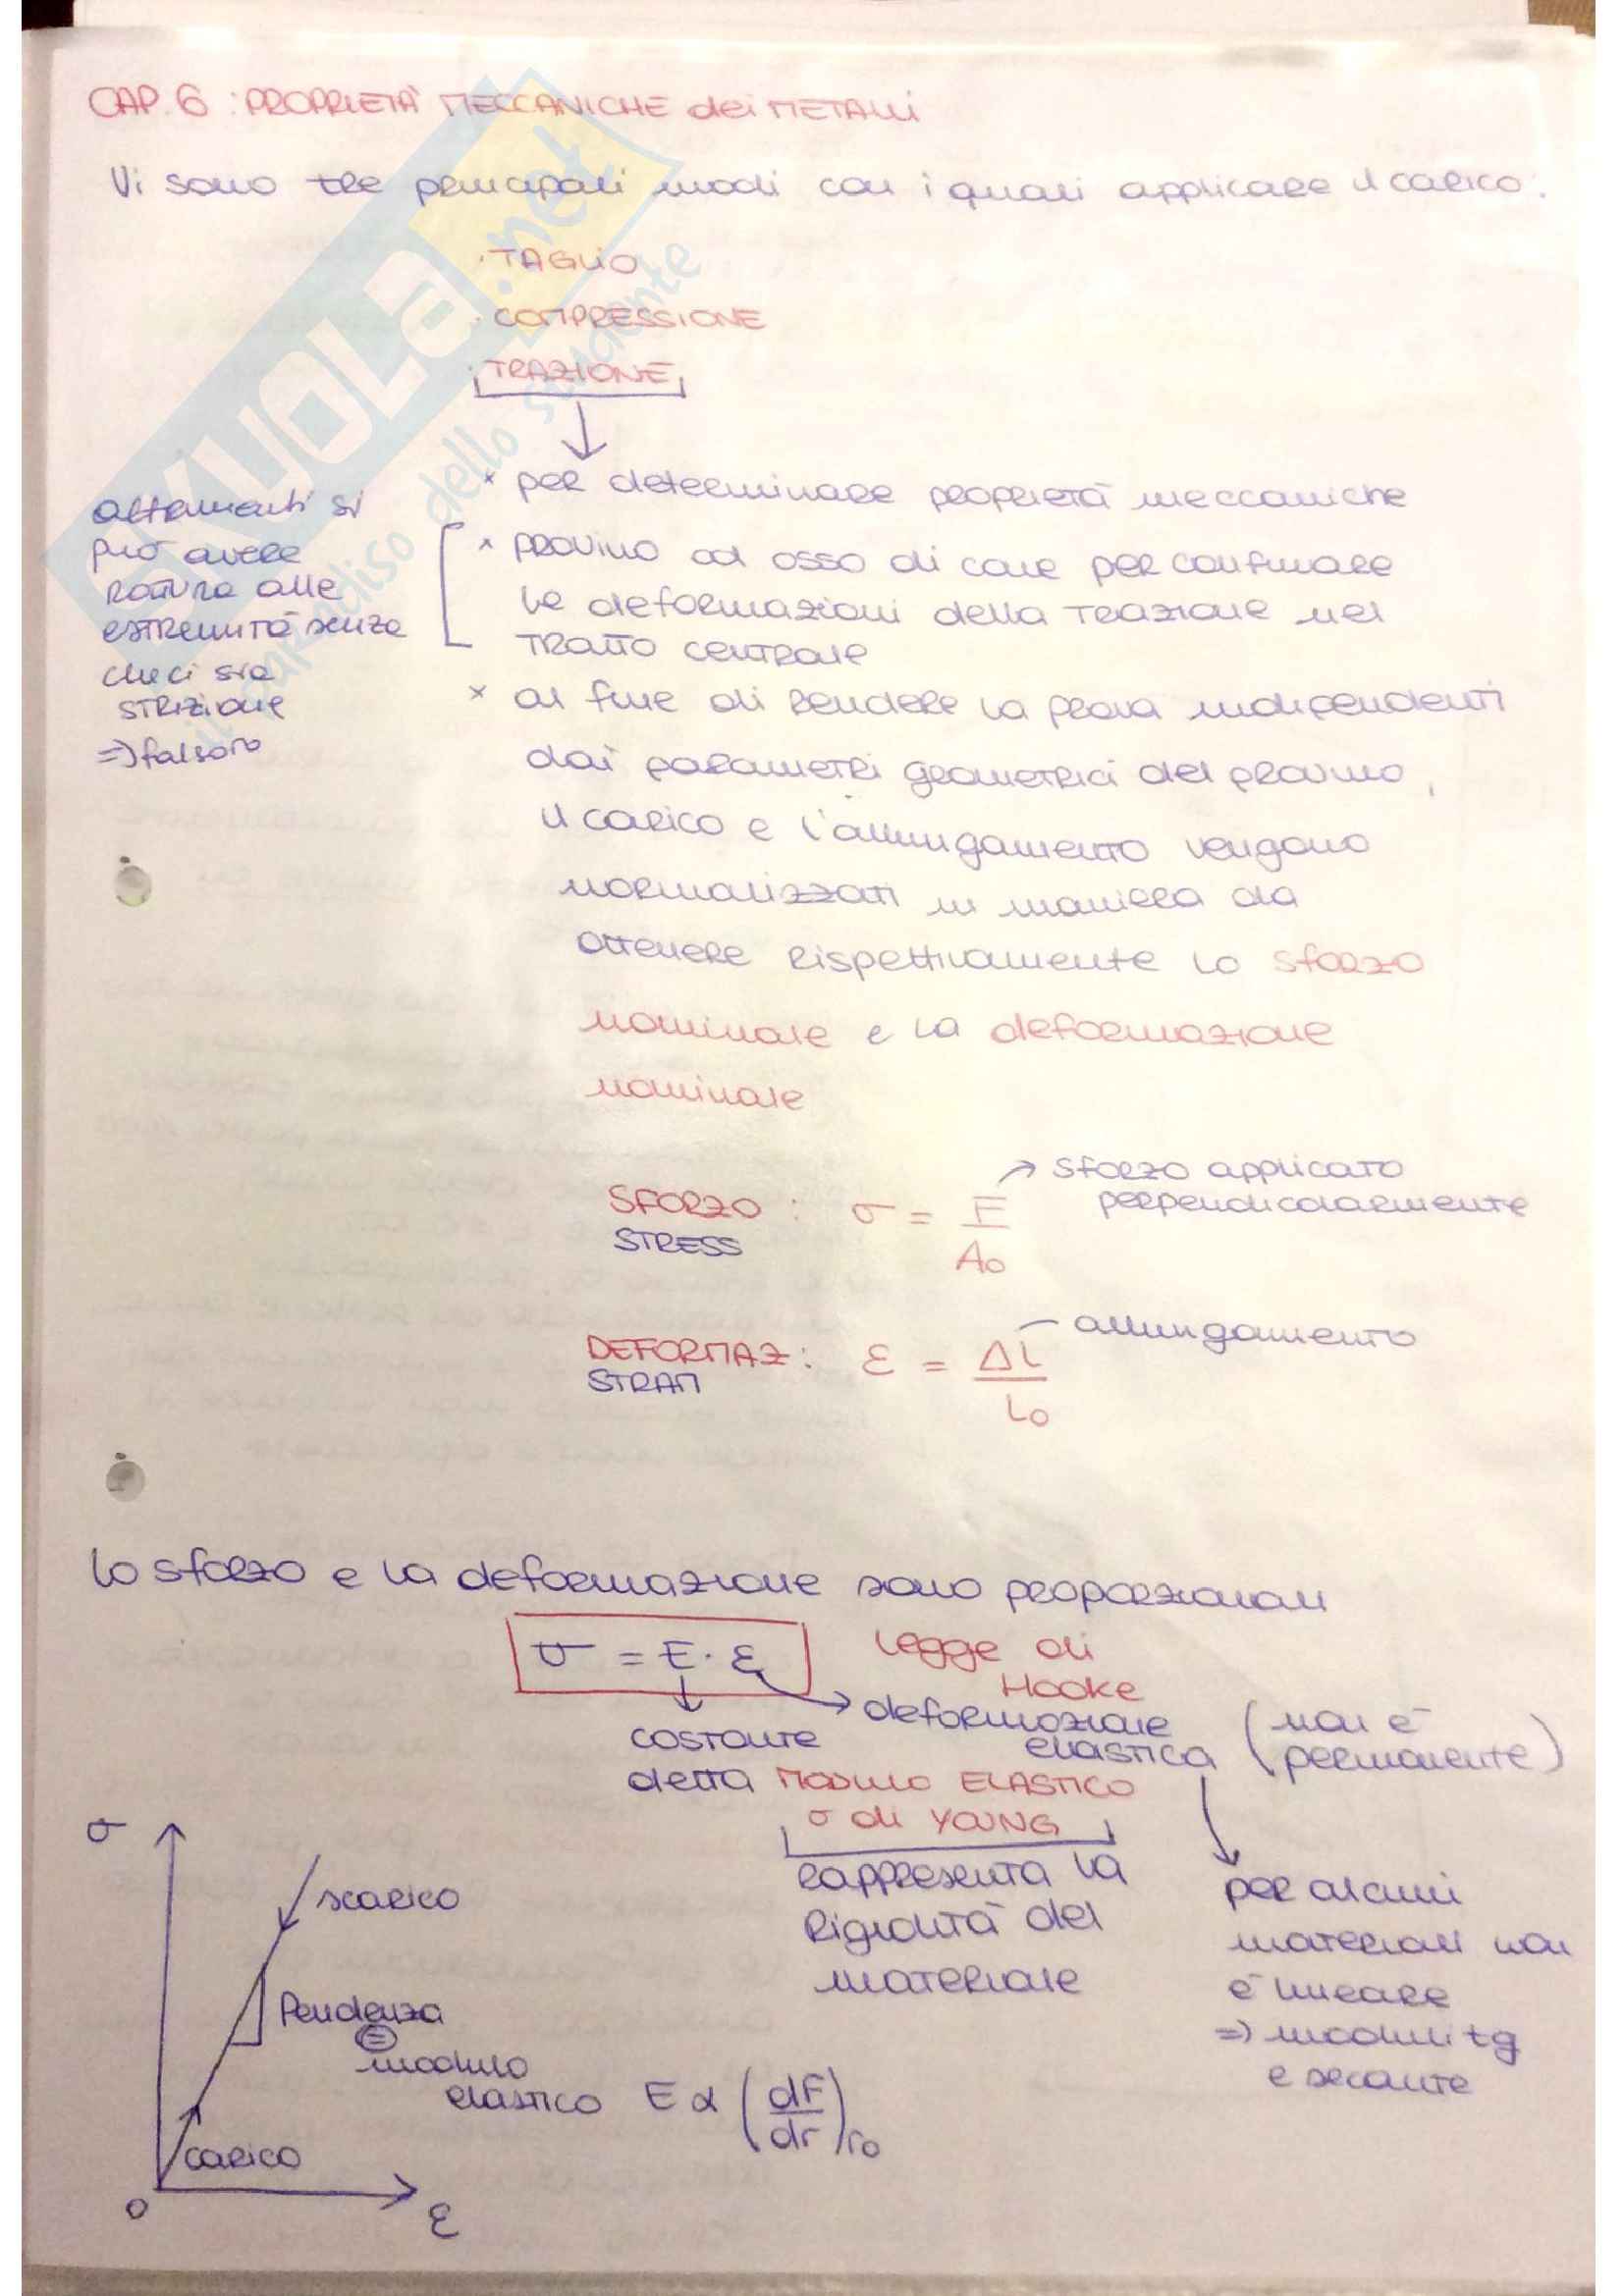 CAP. 6 : PROPRIETÀ MECCANICHE dei METALLI
Vi sono tre principali modi con i quali applicare il carico:
· TAGLIO
· COMPRESSIONE
· TRAZIONE
× per determinare proprietà meccaniche
× provino ad osso di cane per confinare
le deformazioni della trazione nel
tratto centrale
altrimenti si
può avere
rottura alle
estremità senza
che ci sia
STRIZIONE
=) falsato
× al fine di rendere la prova indipendenti
dai parametri geometrici del provino,
il carico e l'allungamento vengono
normalizzati in maniera da
ottenere rispettivamente lo sforzo
nominale e la deformazione
nominale
SFORZO : σ = F / A0 → sforzo applicato
STRESS perpendicolarmente
DEFORMAZ : ε = Δl / l0 — allungamento
STRAIN
lo sforzo e la deformazione sono proporzionali
σ = E · ε Legge di
Hooke
→ deformazione
elastica (non è
permanente)
costante
detta MODULO ELASTICO
o di YOUNG
rappresenta la
rigidità del
materiale
per alcuni
materiali non
è lineare
=) moduli tg
e secante
σ
scarico
Pendenza
=
modulo
elastico E α (dF/dr)r0
carico
0
ε
SKUOLA.net
il paradiso dello studente